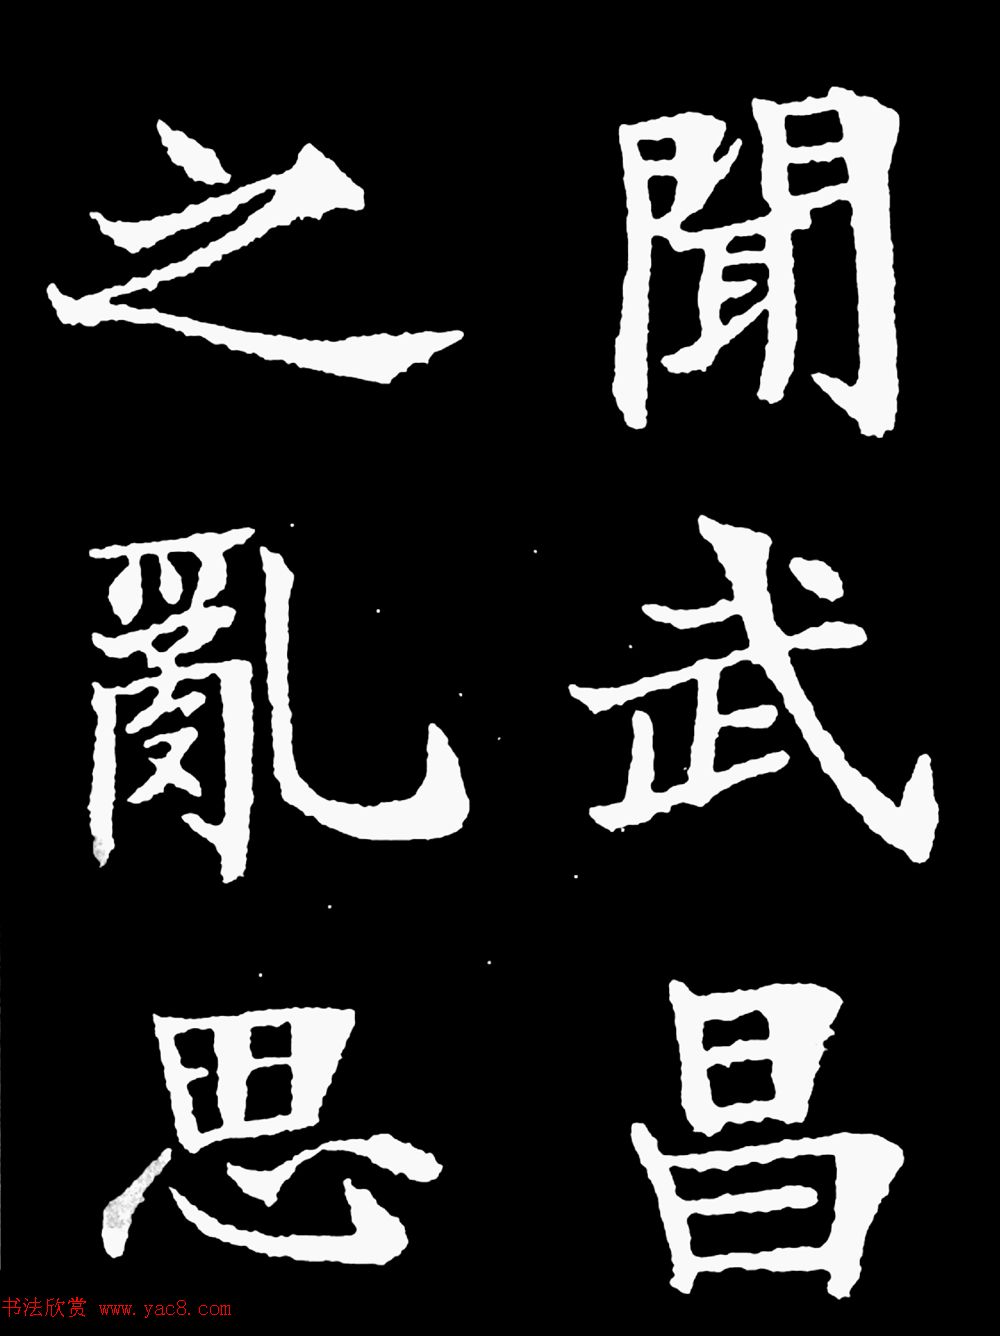 聞武昌
之亂思
书法欣赏 www.yac8.com